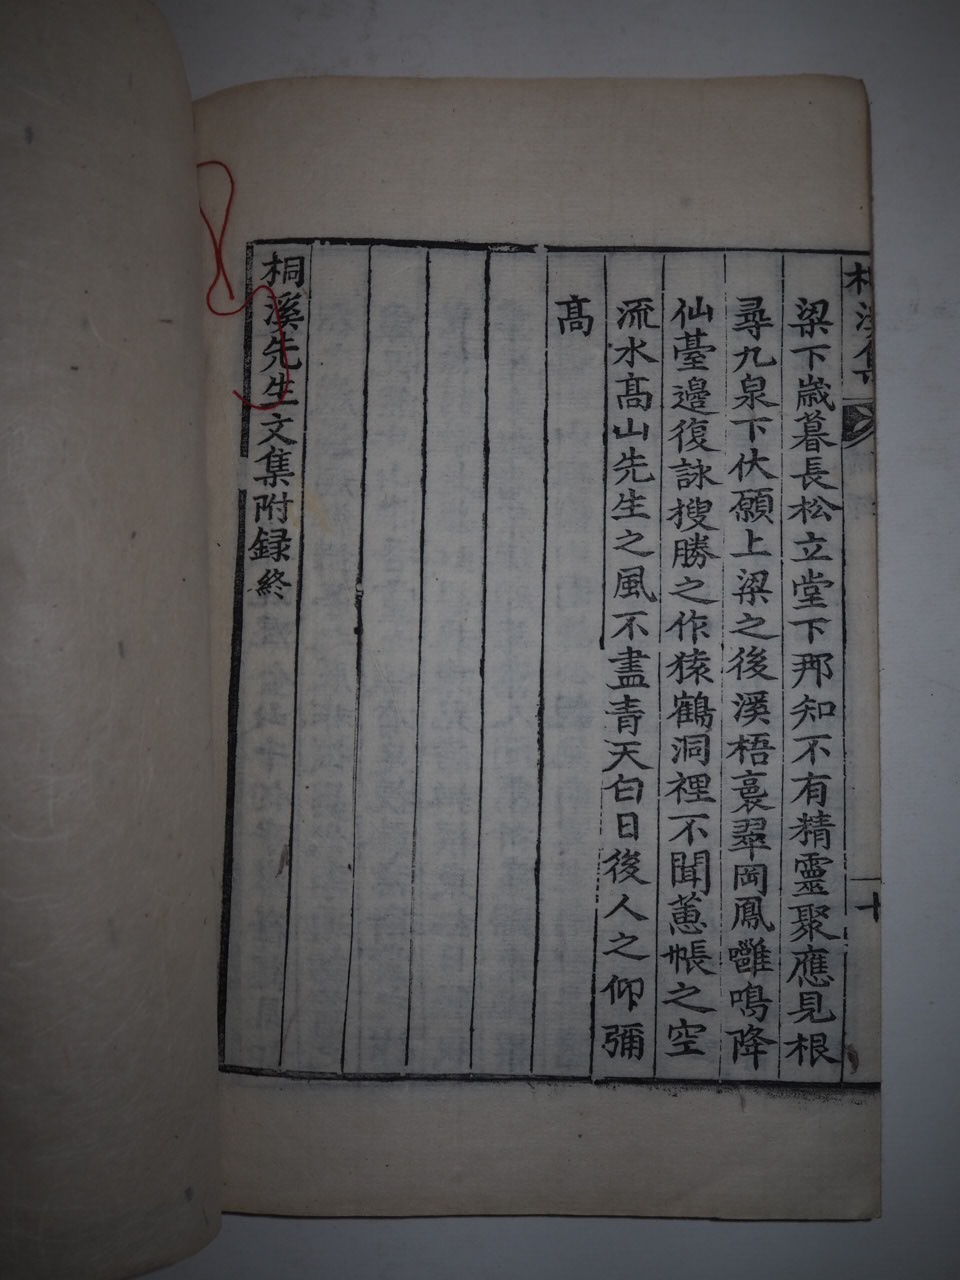 桐溪集
十
梁下歲暮長松立堂下那知不有精靈聚應見根
尋九泉下伏願上梁之後溪梧裛翠岡鳳雝鳴降
仙臺邊復詠搜勝之作猿鶴洞裡不聞蕙帳之空
流水高山先生之風不盡青天白日後人之仰彌
高
桐溪先生文集附録終